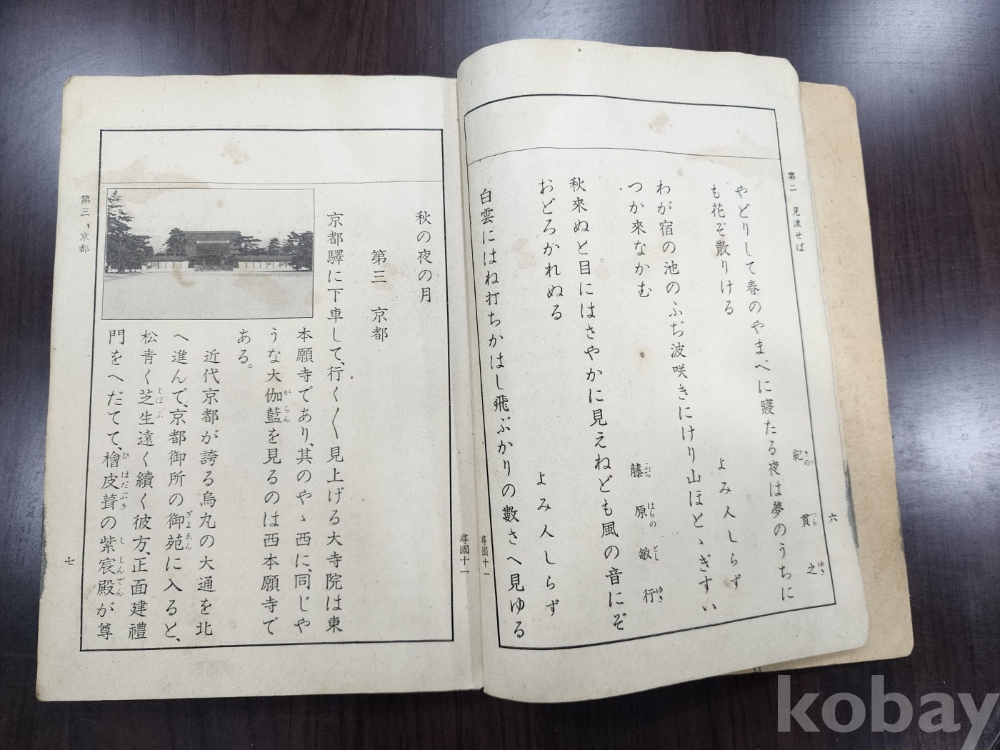 第二　見渡せば
六
紀貫之
きのつらゆき
やどりして春のやまべに寢たる夜は夢のうちに
も花ぞ散りける
よみ人しらず
わが宿の池のふぢ波咲きにけり山ほとゝぎすい
つか来なかむ
藤原敏行
ふぢはらのとしゆき
秋來ぬと目にはさやかに見えねども風の音にぞ
おどろかれぬる
よみ人しらず
白雲にはね打ちかはし飛ぶかりの數さへ見ゆる
尋國十一
尋國十一
秋の夜の月
第三　京都
京都驛に下車して、行く〱見上げる大寺院は東
本願寺であり、其のやゝ西に、同じや
うな大伽藍を見るのは西本願寺で
がらん
ある。
近代京都が誇る烏丸の大通を北
へ進んで、京都御所の御苑に入ると、
ぎよゑん
松青く芝生遠く續く彼方、正面建禮
しばふ
門をへだてて、檜皮葺の紫宸殿が尊
ひはだぶき
ししんでん
第三　京都
七
kobay